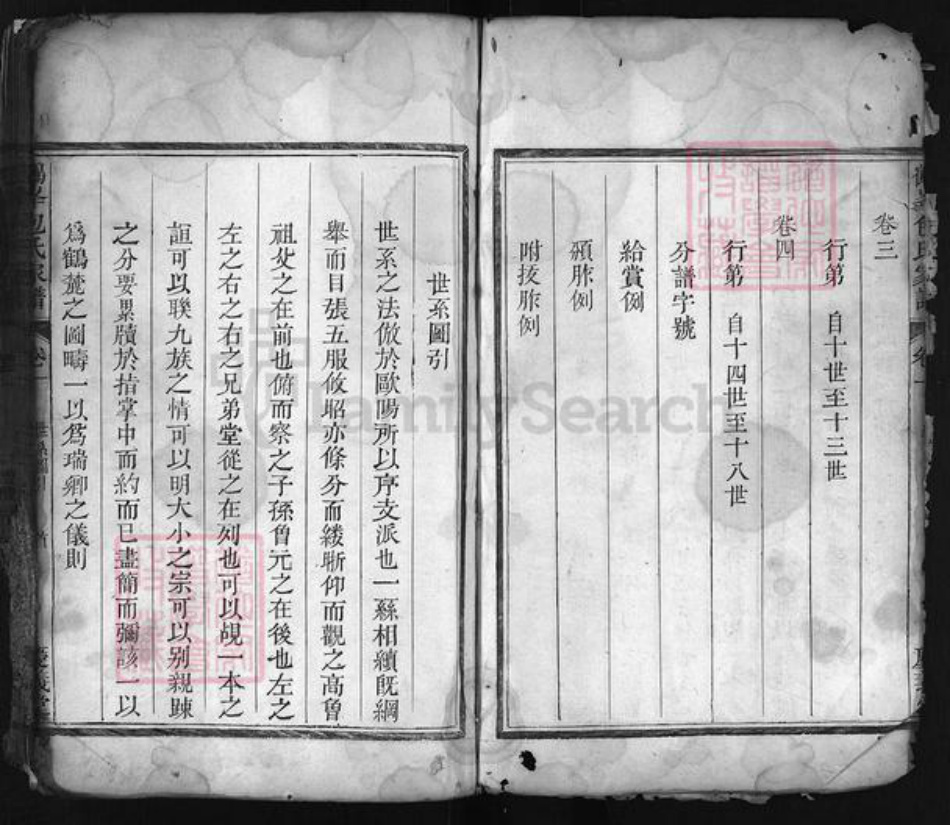 卷三
行第 自十世至十三世
卷四
行第 自十四世至十八世
分譜字號
給賞例
頒胙例
附授胙例
世系圖引
世系之法倣於歐陽所以序支派也一繇相續旣綱
舉而目張五服攸昭亦條分而縷晰仰而觀之高曾
祖父之在前也俯而察之子孫曾元之在後也左之
左之右之右之兄弟堂從之在列也可以覘一本之
誼可以聯九族之情可以明大小之宗可以別親踈
之分要累牘於指掌中而約而已盡簡而彌該一以
爲鶴麓之圖疇一以爲瑞卿之儀則
包氏家譜 卷一
FamilySearch